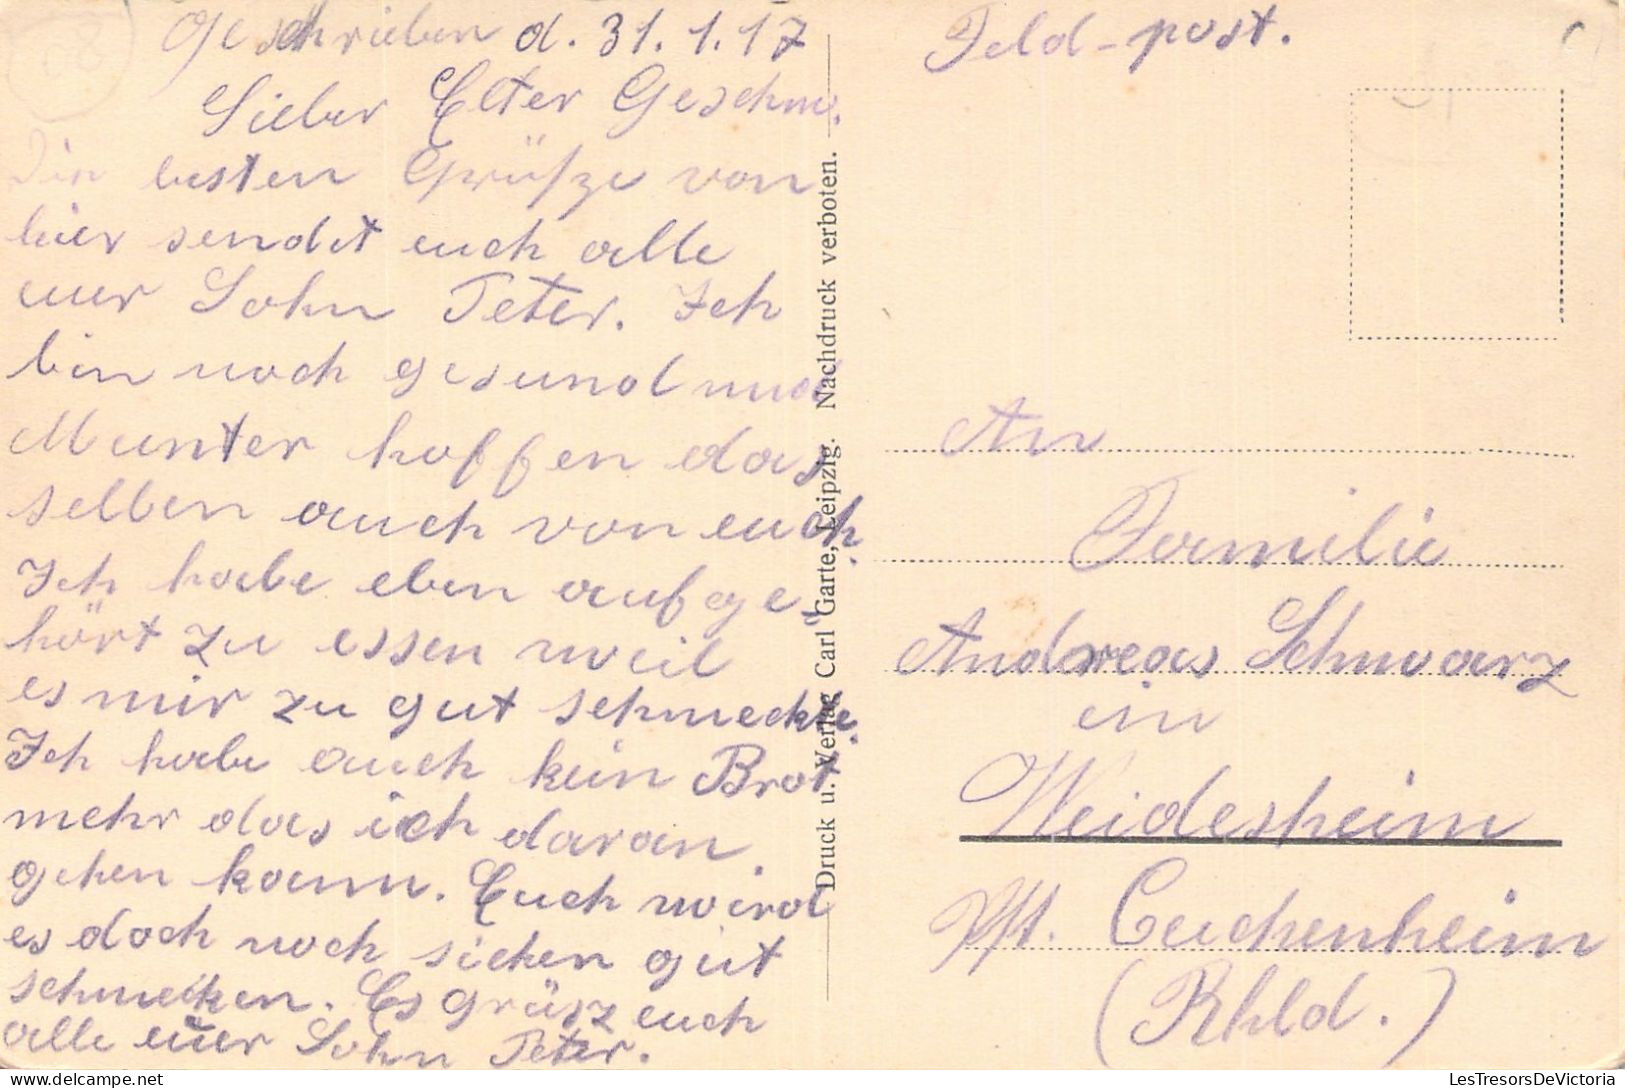 Geschrieben d. 31.1.17
Lieber Elter Geschw.
Die besten Grüfze von
hier sendet euch alle
euer Sohn Peter. Ich
bin noch gesund und
Munter hoffen das
selben auch von euch.
Ich habe eben aufge-
hört zu essen weil
es mir zu gut schmeckte.
Ich habe auch kein Brot
mehr das ich daran
gehen kann. Euch wird
es doch noch sichen gut
schmecken. Es Grüsz euch
alle euer Sohn Peter.
Druck u. Verlag Carl Garte, Leipzig. Nachdruck verboten.
Feld-post.
An
Familie
Andreas Schwarz
in
Weidesheim
Pst. Cuchenheim
(Rhld.)
LesTresorsDeVictoria